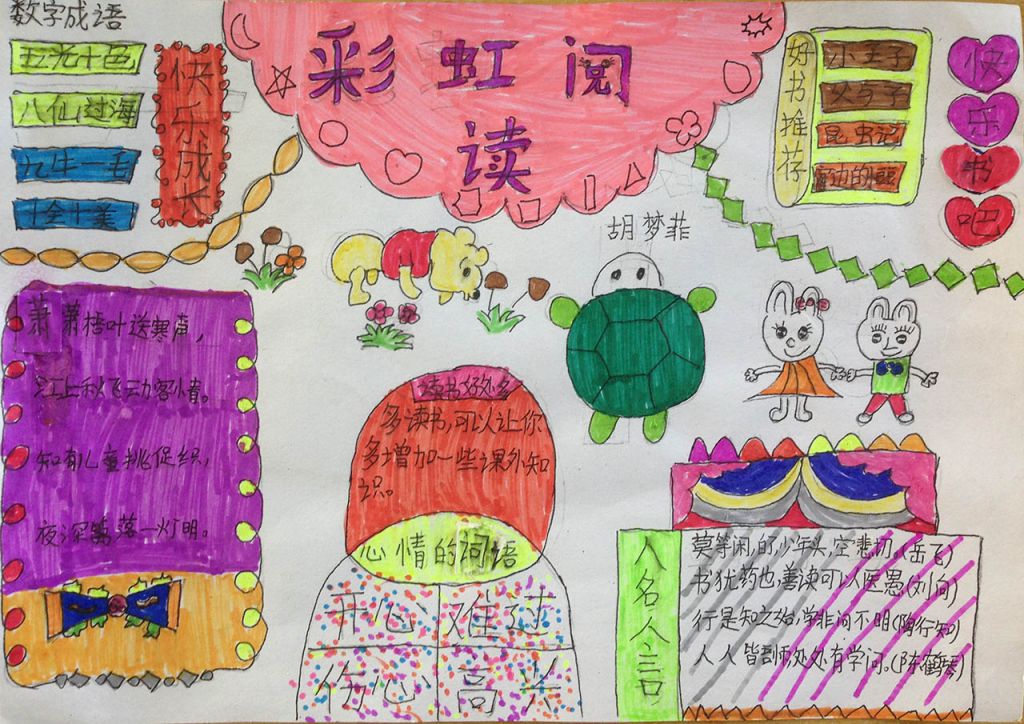 数字成语
五光十色
八仙过海
九牛一毛
十全十美
快乐成长
彩虹阅读
好书推荐
小王子
父与子
昆虫记
快乐书吧
胡梦菲
萧萧梧叶送寒声，
江上秋飞动客情。
知有儿童挑促织，
夜深篱落一灯明。
读书好处多
多读书，可以让你
多增加一些课外知
识。
心情的词语
开心
难过
伤心
高兴
人名人言
莫等闲，的，少年头，空悲切。(岳飞)
书犹药也，善读可以医愚(刘向)
行是知之始，学非问不明(陶行知)
人人皆剖师处处有学问。(陈鹤琴)